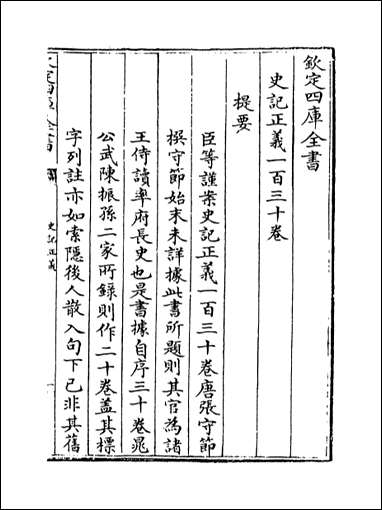 欽定四庫全書
史記正義一百三十卷
提要
臣等謹案史記正義一百三十卷唐張守節
撰守節始末未詳據此書所題則其官為諸
王侍讀率府長史也是書據自序三十卷晁
公武陳振孫二家所錄則作二十卷蓋其標
字列註亦如索隱後人散入句下已非其舊
欽定四庫全書
史記正義